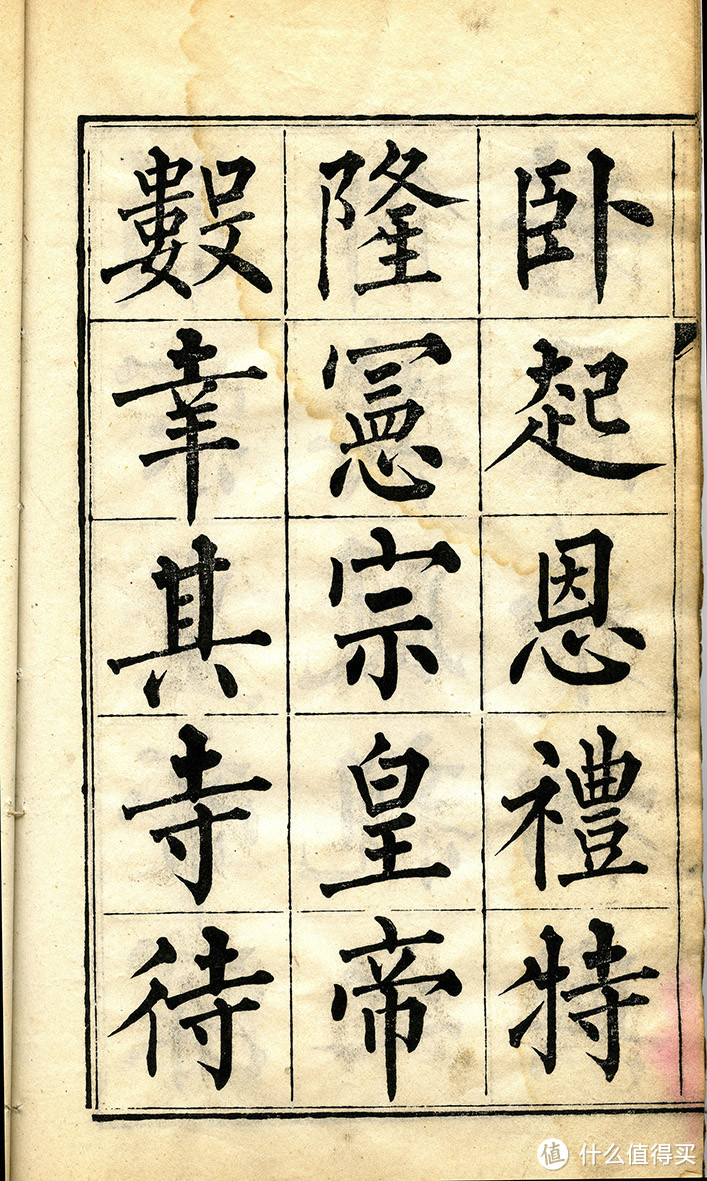 卧起恩禮特
隆憲宗皇帝
數幸其寺待
值 什么值得买